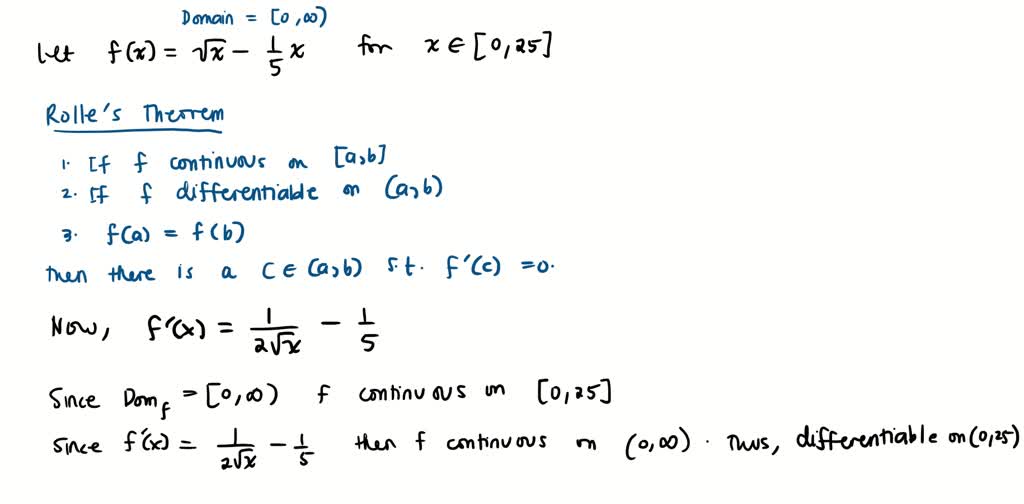 Domain = [0,∞)
Let f(x) = √x − 1/5 x for x ∈ [0,25]
Rolle's Theorem
1. If f continuous on [a,b]
2. If f differentiable on (a,b)
3. f(a) = f(b)
then there is a c ∈ (a,b) s.t. f'(c) = 0.
Now, f'(x) = 1/(2√x) − 1/5
Since Dom_f = [0,∞) f continuous on [0,25]
Since f'(x) = 1/(2√x) − 1/5 then f continuous on (0,∞). Thus, differentiable on (0,25)